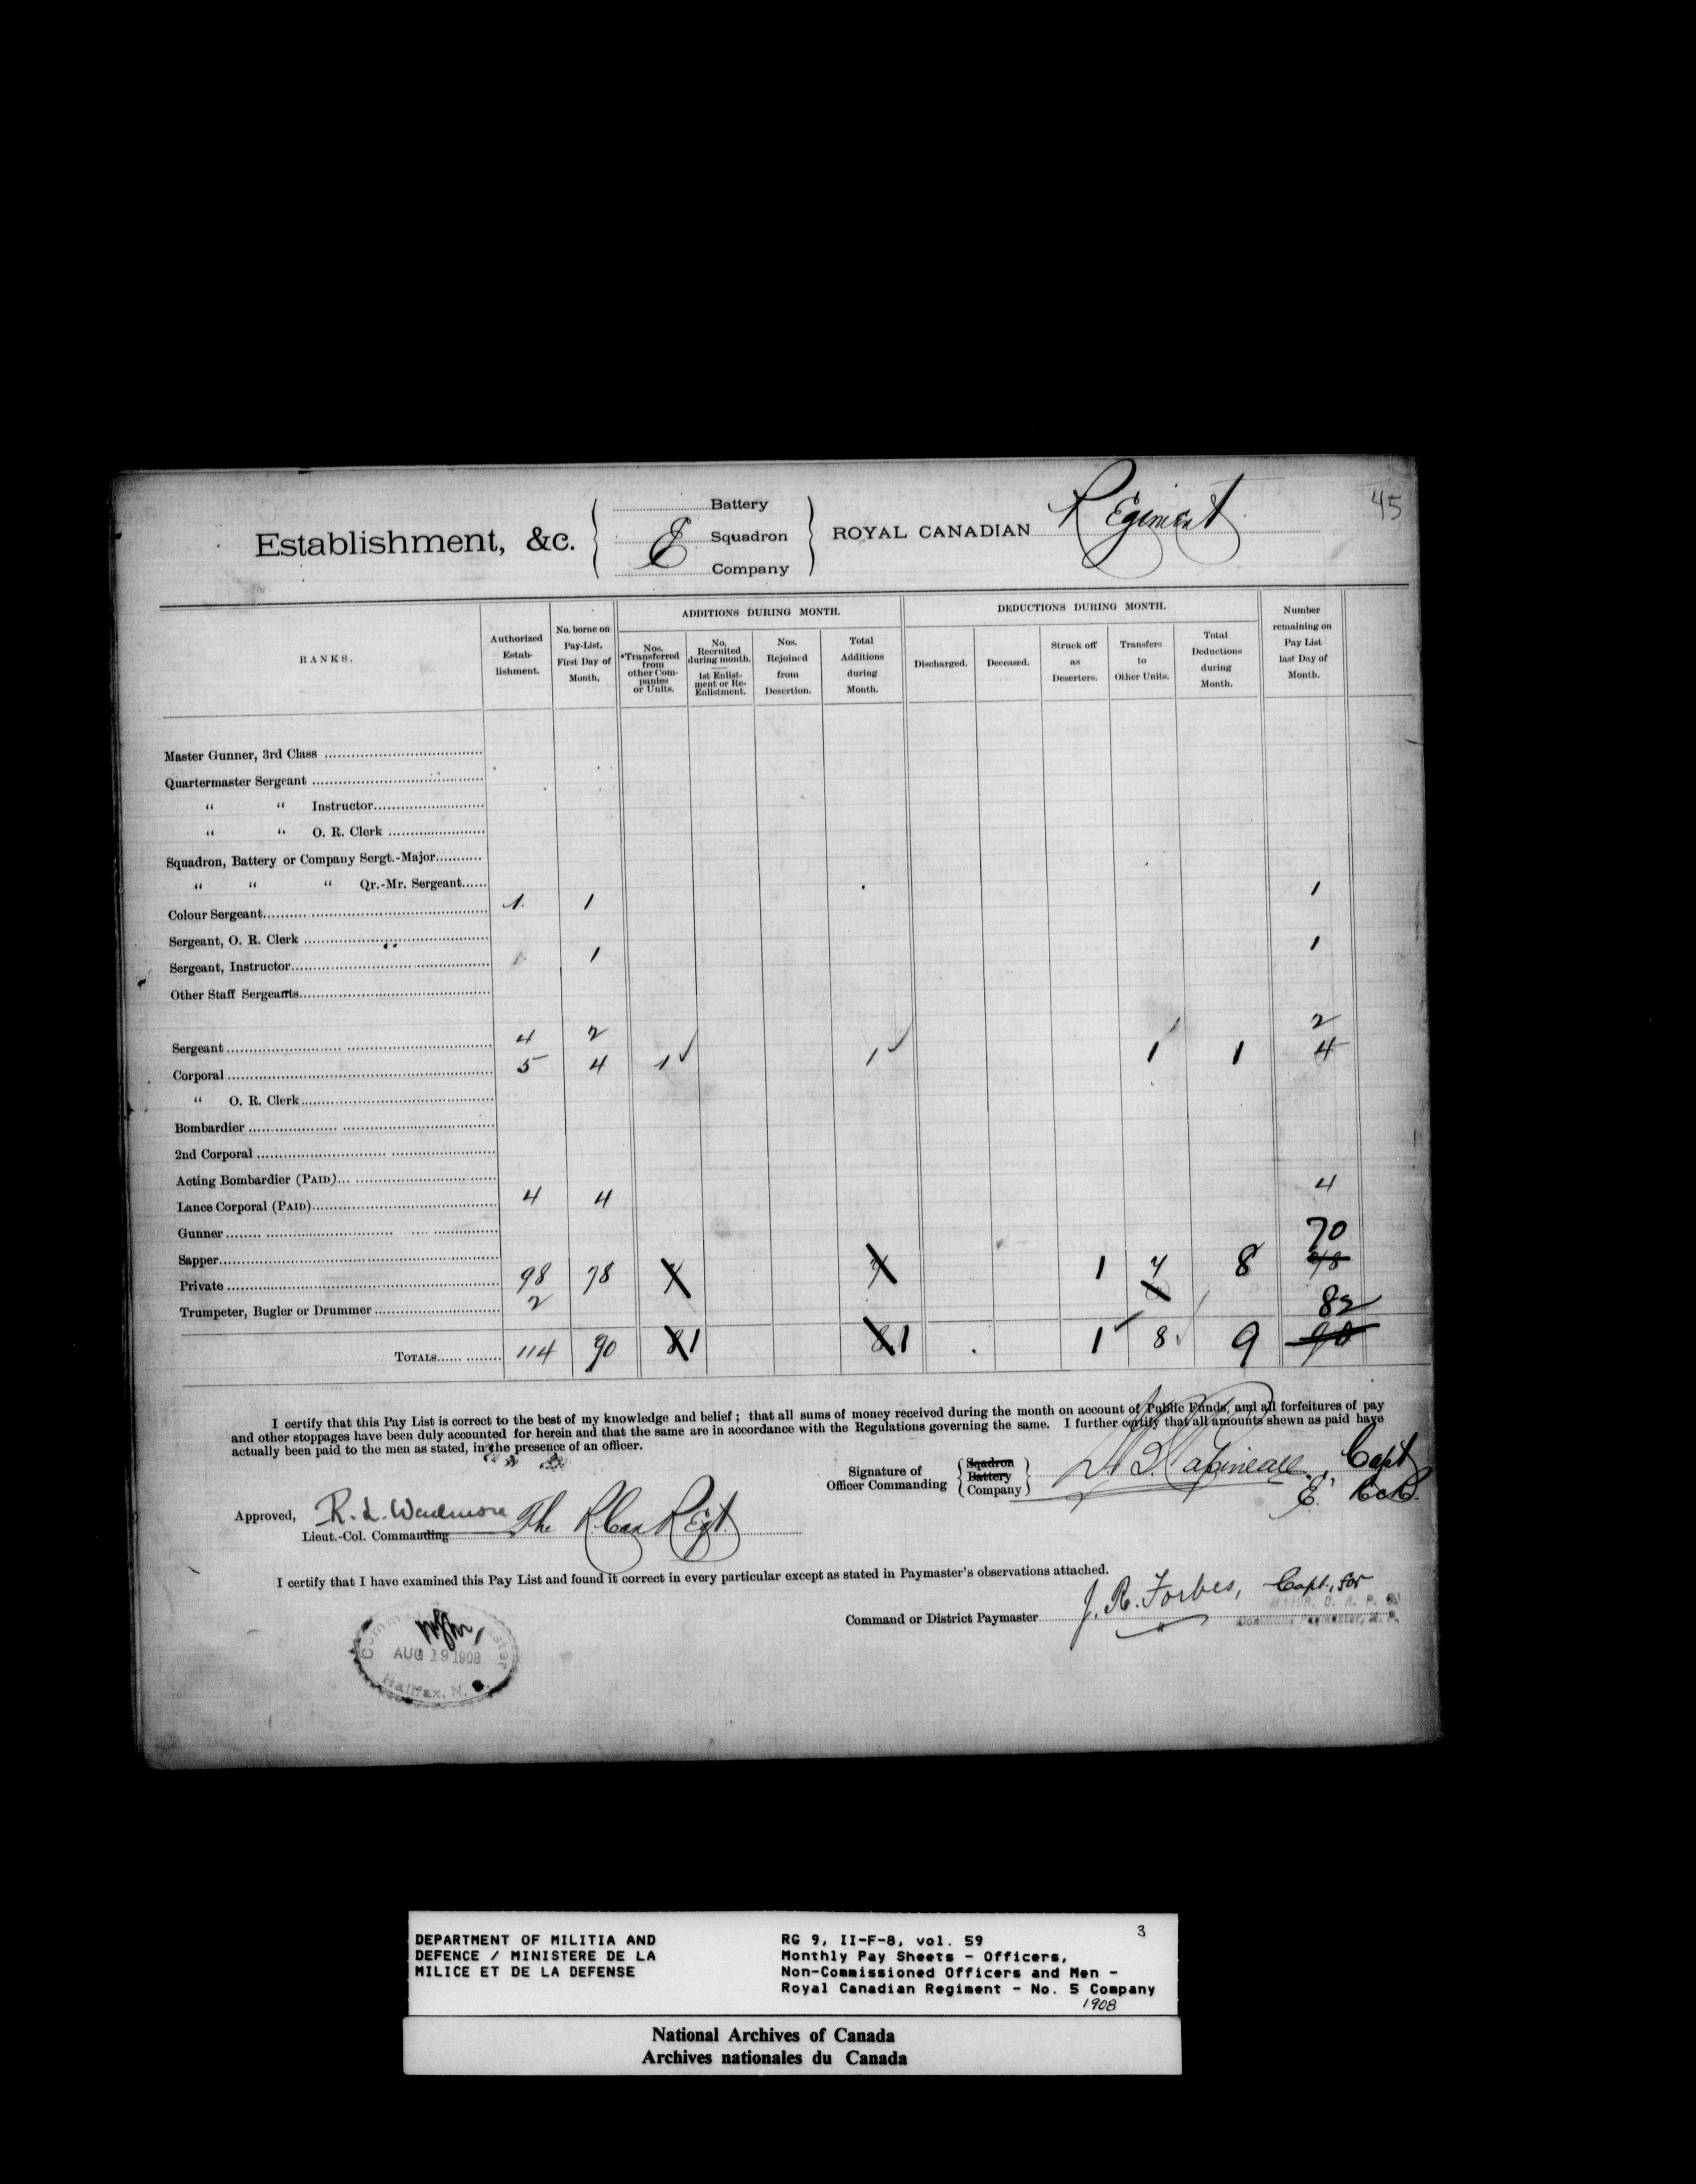 45
Establishment, &c. { Battery E Squadron Company } ROYAL CANADIAN Regiment
RANKS. Authorized Establishment. No. borne on Pay-List. First Day of Month. ADDITIONS DURING MONTH. DEDUCTIONS DURING MONTH. Number remaining on Pay List last Day of Month.
Nos. *Transferred from other Companies or Units. No. Recruited during month. 1st Enlistment or Re-Enlistment. Nos. Rejoined from Desertion. Total Additions during Month. Discharged. Deceased. Struck off as Deserters. Transfers to Other Units. Total Deductions during Month.
Master Gunner, 3rd Class
Quartermaster Sergeant
“ “ Instructor
“ “ O. R. Clerk
Squadron, Battery or Company Sergt.-Major
“ “ “ Qr.-Mr. Sergeant
Colour Sergeant 1 1 1
Sergeant, O. R. Clerk
Sergeant, Instructor 1 1 1
Other Staff Sergeants
Sergeant 4 2 2
Corporal 5 4 1 1 1 1 4
“ O. R. Clerk
Bombardier
2nd Corporal
Acting Bombardier (PAID)
Lance Corporal (PAID) 4 4 4
Gunner
Sapper
Private 98 78 1 7 8 70
Trumpeter, Bugler or Drummer 2
TOTALS 114 90 1 1 1 8 9 82 90
I certify that this Pay List is correct to the best of my knowledge and belief ; that all sums of money received during the month on account of Public Funds, and all forfeitures of pay
and other stoppages have been duly accounted for herein and that the same are in accordance with the Regulations governing the same. I further certify that all amounts shewn as paid have
actually been paid to the men as stated, in the presence of an officer.
Signature of Officer Commanding { Sqadron Battery Company } Capt
E.
Approved, R. L. Wadmore The R Can Regt.
Lieut.-Col. Commanding
I certify that I have examined this Pay List and found it correct in every particular except as stated in Paymaster's observations attached.
Command or District Paymaster J. R. Forbes, Capt., for
AUG 19 1908
Halifax, N.
3
DEPARTMENT OF MILITIA AND
DEFENCE / MINISTERE DE LA
MILICE ET DE LA DEFENSE
RG 9, II-F-8, vol. 59
Monthly Pay Sheets - Officers,
Non-Commissioned Officers and Men -
Royal Canadian Regiment - No. 5 Company
1908
National Archives of Canada
Archives nationales du Canada